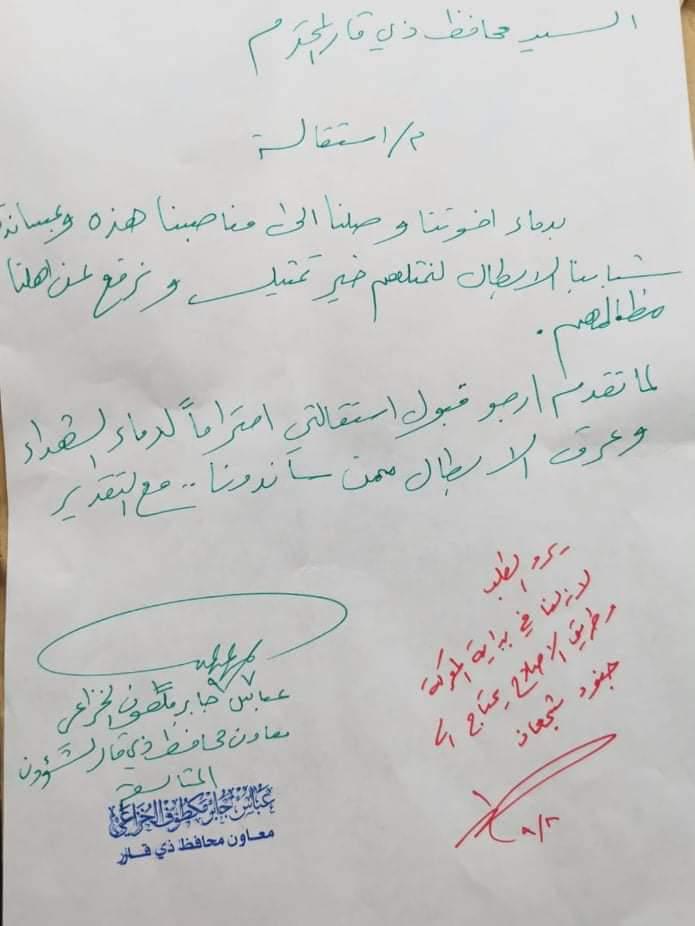 السيد محافظ ذي قار المحترم
م/ استقالة
بدماء اخوتنا وصلنا الى مناصبنا هذه وبمساندة
شبابنا الابطال لنمثلهم خير تمثيل ونرفع عن اهلنا
مظالمهم.
لما تقدم ارجو قبول استقالتي احتراماً لدماء الشهداء
وعرق الابطال ممن ساندونا .. مع التقدير
يرد الطلب
لازلنا في بداية المعركة
وطريق الاصلاح يحتاج الى
جنود شجعان
٩/٢
عباس جابر مكطوف الخزاعي
معاون محافظ ذي قار لشؤون
عباس جابر مكطوف الخزاعي
معاون محافظ ذي قار